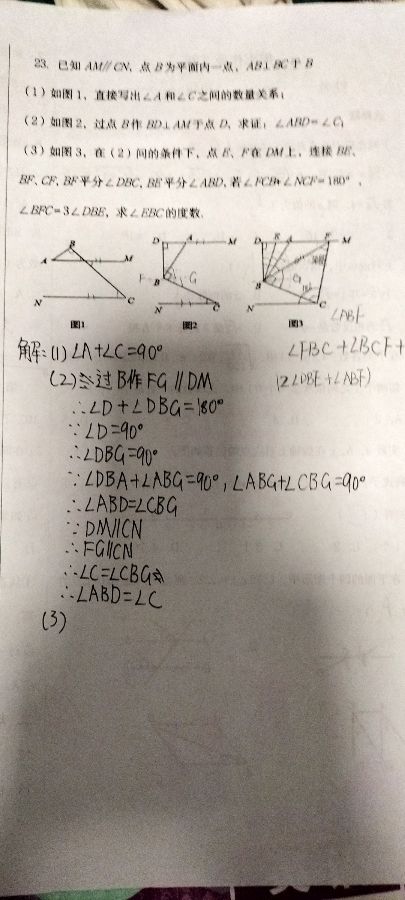 23. 已知 AM∥CN, 点 B 为平面内一点, AB⊥BC 于 B
(1) 如图1, 直接写出∠A 和∠C 之间的数量关系;
(2) 如图2, 过点 B 作 BD⊥AM 于点 D, 求证: ∠ABD=∠C;
(3) 如图3, 在 (2) 问的条件下, 点 E、F 在 DM 上, 连接 BE、
BF、CF, BF 平分∠DBC, BE 平分∠ABD, 若∠FCB+∠NCF=180°,
∠BFC=3∠DBE, 求∠EBC 的度数.
B
A M
N C
图1
D A M
F B G
N C
图2
D E A F M
B G
N C
图3
∠ABF
解:(1)∠A+∠C=90°
∠FBC+∠BCF+
(2)过B作FG∥DM
(2∠DBE+∠ABF)
∴∠D+∠DBG=180°
∵∠D=90°
∴∠DBG=90°
∵∠DBA+∠ABG=90°,∠ABG+∠CBG=90°
∴∠ABD=∠CBG
∵DM∥CN
∴FG∥CN
∴∠C=∠CBG
∴∠ABD=∠C
(3)